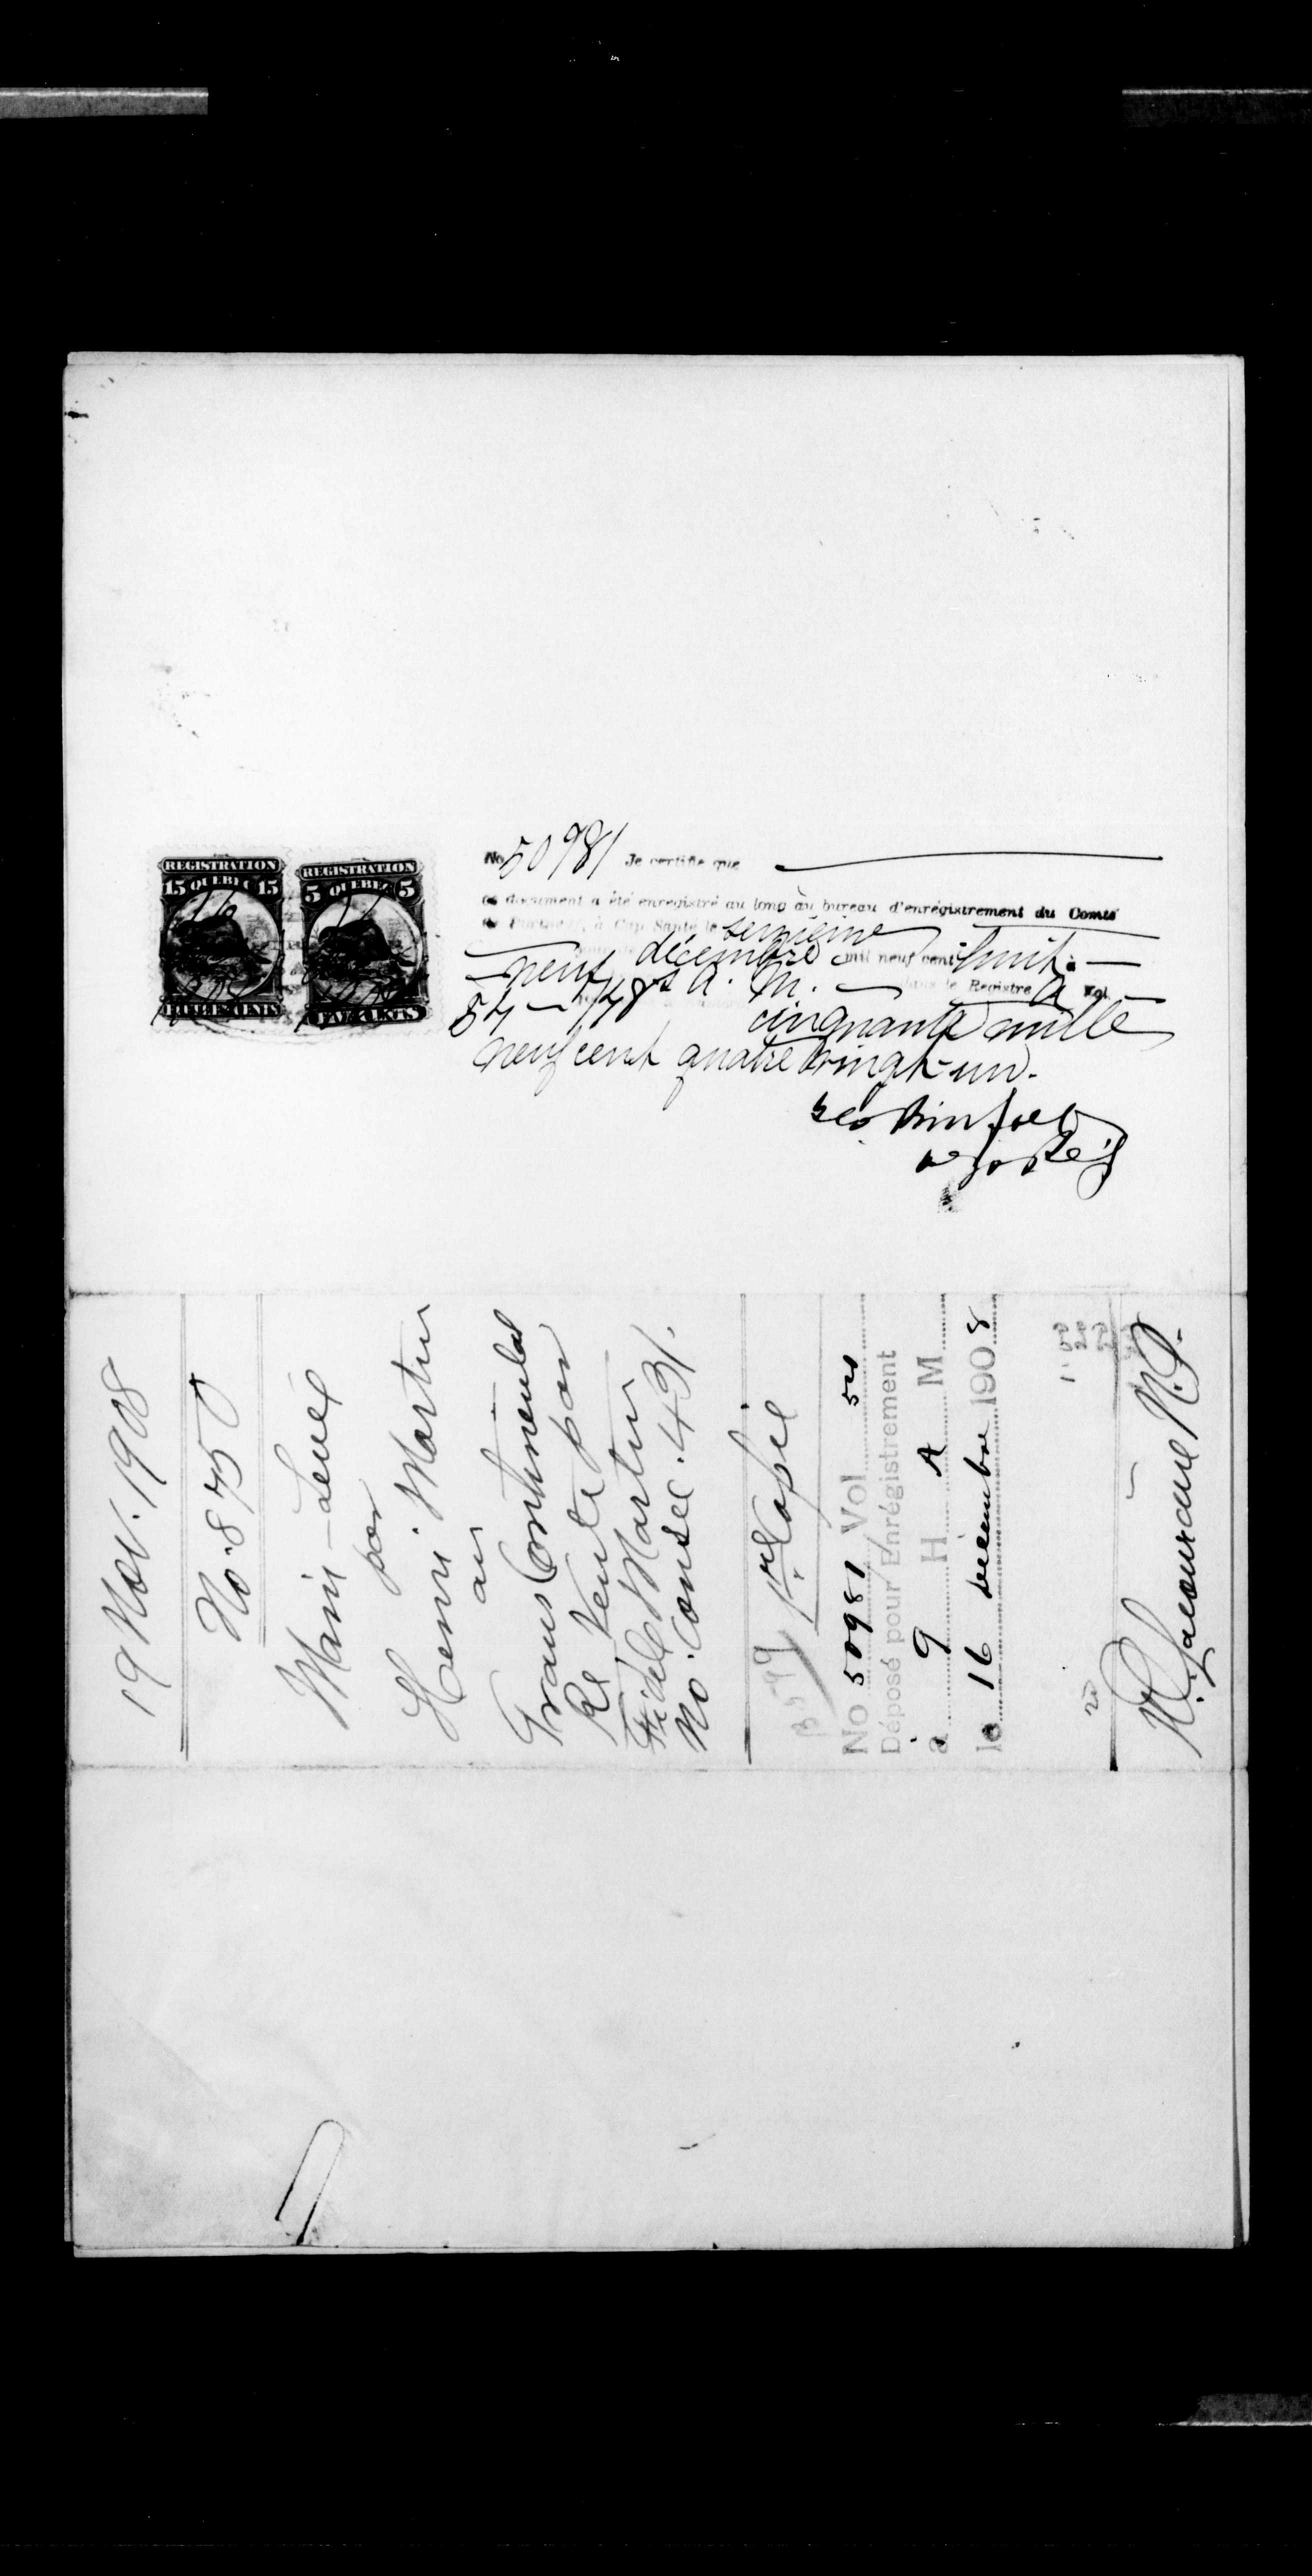 REGISTRATION
15 QUEBEC 15
FIFTEEN CENTS
REGISTRATION
5 QUEBEC 5
FIVE CENTS
No 50981 Je certifie que
ce document a été enregistré au long au bureau d'enrégistrement du Comté
de Portneuf, à Cap Santé le seizième
décembre mil neuf cent huit.
neuf hrs A. M. dans le Registre A Vol.
54 cinquante mille
neuf cent quatre vingt-un.
19 Nov. 1908
No. 8750
Main-Levée
par
Henri Martin
au
Trans Continental
Re Vente par
Fidèle Martin
No. Consec. 431.
1re Copie
No 50981 Vol 54
Déposé pour Enrégistrement
à 9 H A M
le 16 décembre 1908
N.P.